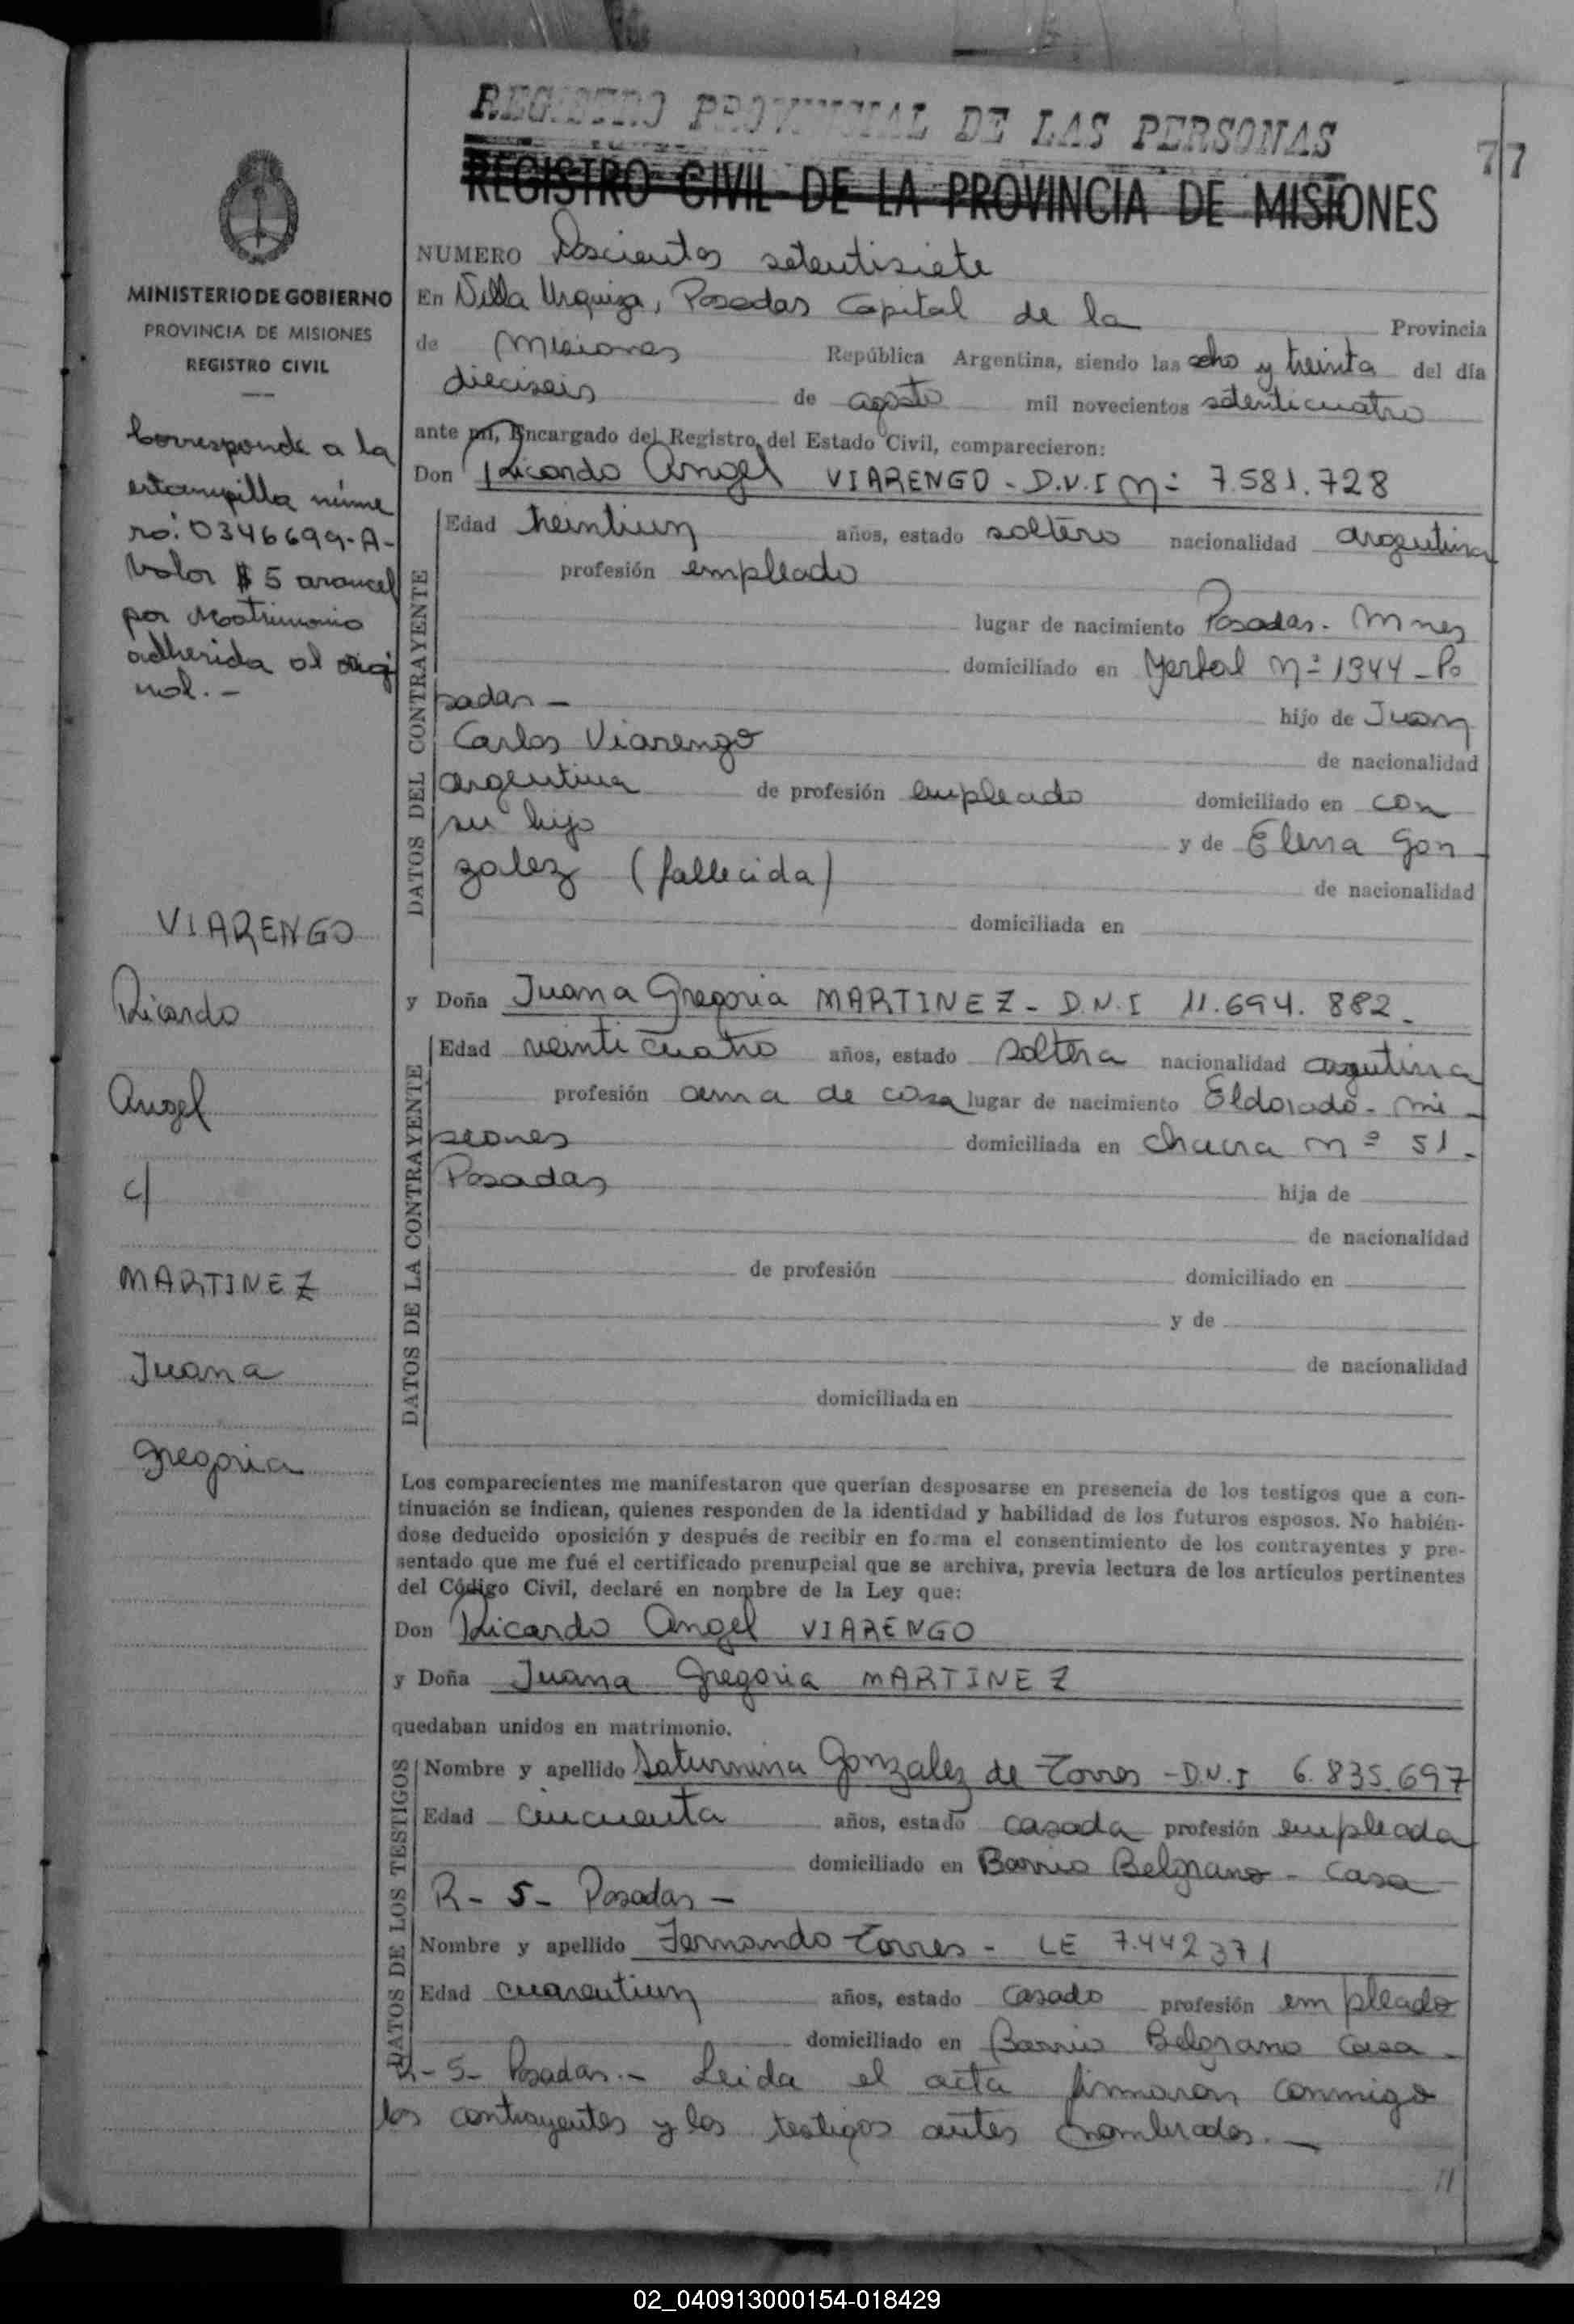 REGISTRO PROVINCIAL DE LAS PERSONAS
REGISTRO CIVIL DE LA PROVINCIA DE MISIONES
77
MINISTERIO DE GOBIERNO
PROVINCIA DE MISIONES
REGISTRO CIVIL
Corresponde a la
estampilla núme
ro: 0346699-A-
Valor $ 5 arancel
por Matrimonio
adherida al origi
nal.-
VIARENGO
Ricardo
Angel
c/
MARTINEZ
Juana
Gregoria
NUMERO Doscientos setentisiete
En Villa Urquiza, Posadas Capital de la Provincia
de Misiones República Argentina, siendo las ocho y treinta del día
dieciseis de agosto mil novecientos setenticuatro
ante mí, Encargado del Registro del Estado Civil, comparecieron:
Don Ricardo Angel VIARENGO - D.N.I Nº 7.581.728
DATOS DEL CONTRAYENTE
Edad treintiun años, estado soltero nacionalidad argentina
profesión empleado
lugar de nacimiento Posadas. Mnes
domiciliado en Yerbal Nº 1344 - Po
sadas -
hijo de Juan
Carlos Viarengo
de nacionalidad
argentina de profesión empleado domiciliado en con
su hijo
y de Elena Gon
zalez (fallecida)
de nacionalidad
domiciliada en
y Doña Juana Gregoria MARTINEZ - D.N.I 11.694.882 -
DATOS DE LA CONTRAYENTE
Edad veinticuatro años, estado soltera nacionalidad argentina
profesión ama de casa lugar de nacimiento Eldorado - Mi -
siones domiciliada en chacra Nº 51 -
Posadas hija de
de nacionalidad
de profesión domiciliado en
y de
de nacionalidad
domiciliada en
Los comparecientes me manifestaron que querían desposarse en presencia de los testigos que a con-
tinuación se indican, quienes responden de la identidad y habilidad de los futuros esposos. No habién-
dose deducido oposición y después de recibir en forma el consentimiento de los contrayentes y pre-
sentado que me fué el certificado prenupcial que se archiva, previa lectura de los artículos pertinentes
del Código Civil, declaré en nombre de la Ley que:
Don Ricardo Angel VIARENGO
y Doña Juana Gregoria MARTINEZ
quedaban unidos en matrimonio.
DATOS DE LOS TESTIGOS
Nombre y apellido Saturnina Gonzalez de Torres - D.N.I 6.835.697
Edad cincuenta años, estado casada profesión empleada
domiciliado en Barrio Belgrano - Casa
R - 5 - Posadas -
Nombre y apellido Fernando Torres - LE 7.442371
Edad cuarentiun años, estado casado profesión empleado
domiciliado en Barrio Belgrano Casa -
R - 5 - Posadas.- Leida el acta firmaron conmigo
los contrayentes y los testigos antes nombrados.-
//
02_040913000154-018429